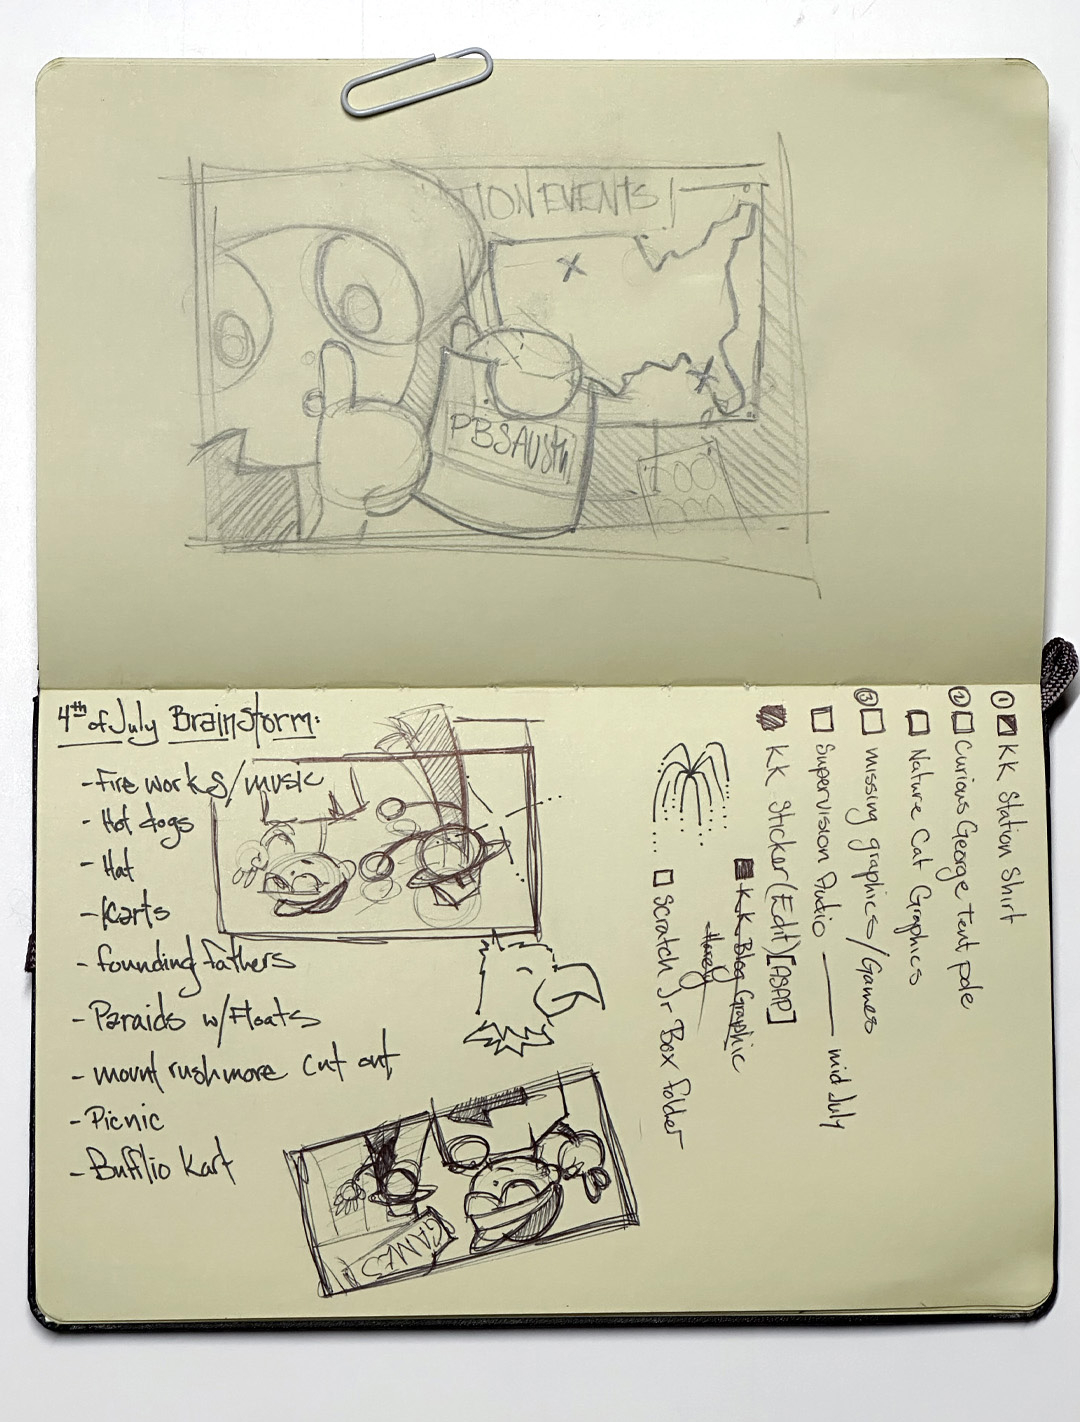 TION EVENTS
PBS Austin
4th of July Brainstorm:
- Fire works/music
- Hot dogs
- Hat
- Karts
- founding fathers
- Paraids w/Floats
- mount rushmore cut out
- Picnic
- Bufflio Kart
GAMES
① KK Station Shirt
② Curious George tent pole
Nature Cat Graphics
③ missing graphics/Games
Supervision Audio — mid July
KK Sticker (Edit) [ASAP]
KK Blog Graphic
Scratch Jr Box folder